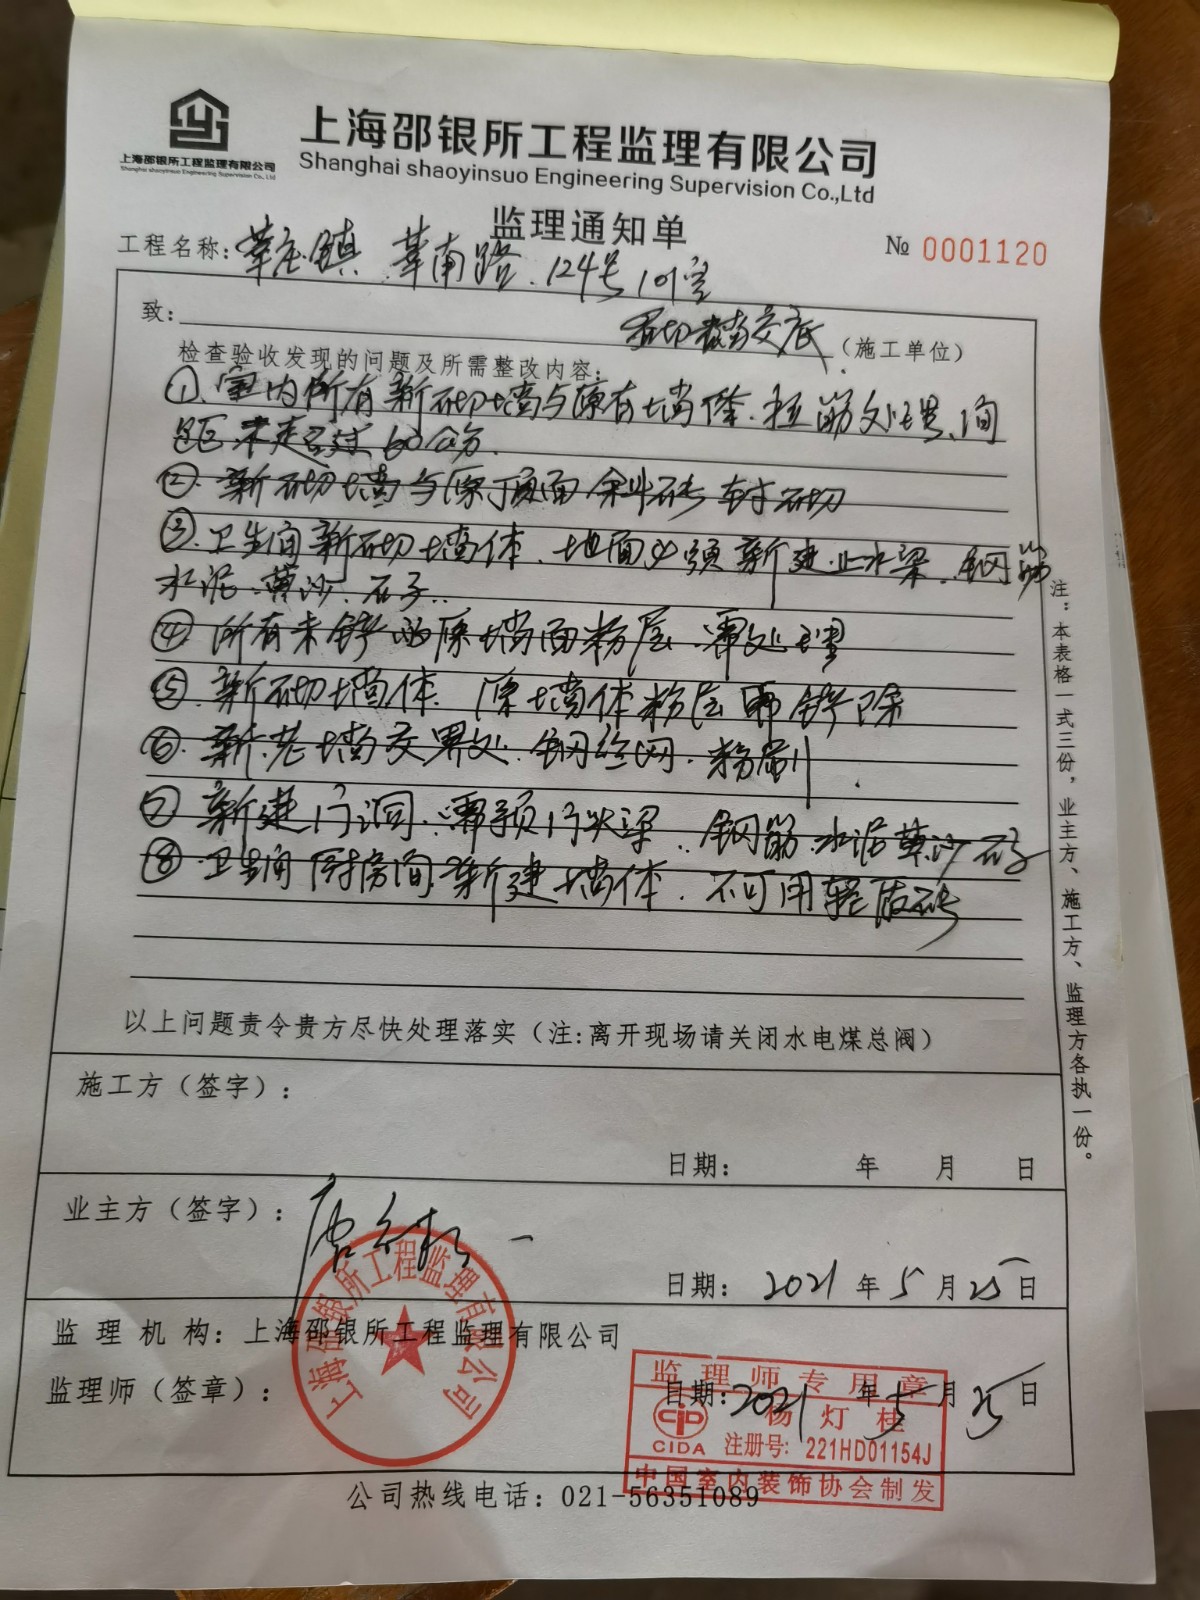 上海邵银所工程监理有限公司
Shanghai shaoyinsuo Engineering Supervision Co.,Ltd
上海邵银所工程监理有限公司
Shanghai shaoyinsuo Engineering Supervision Co., Ltd
监理通知单
№ 0001120
工程名称: 莘庄镇.莘南路.124号101室
致: 砌墙交底 (施工单位)
检查验收发现的问题及所需整改内容:
①.室内所有新砌墙与原有墙体.拉筋处理.间
距.未超过60公分.
②.新砌墙与原顶面斜砖封砌
③.卫生间新砌墙体.地面必须新建止水梁..钢筋
水泥.黄沙.石子..
④.所有未铲的原墙面粉层.需处理
⑤.新砌墙体.原墙体粉层需铲除
⑥.新老墙交界处.钢丝网.粉刷.
⑦新建门洞.需预门头梁..钢筋.水泥黄沙石子
⑧.卫生间厨房间新建墙体.不可用轻质砖
以上问题责令贵方尽快处理落实(注:离开现场请关闭水电煤总阀)
施工方(签字):
日期: 年 月 日
业主方(签字):
日期: 2021年5月25日
监理机构: 上海邵银所工程监理有限公司
监理师(签章):
日期: 2021年5月25日
上海邵银所工程监理有限公司
监理师专用章
CIDA
杨灯桂
注册号: 221HD01154J
中国室内装饰协会制发
公司热线电话: 021-56351089
注:本表格一式三份,业主方、施工方、监理方各执一份。